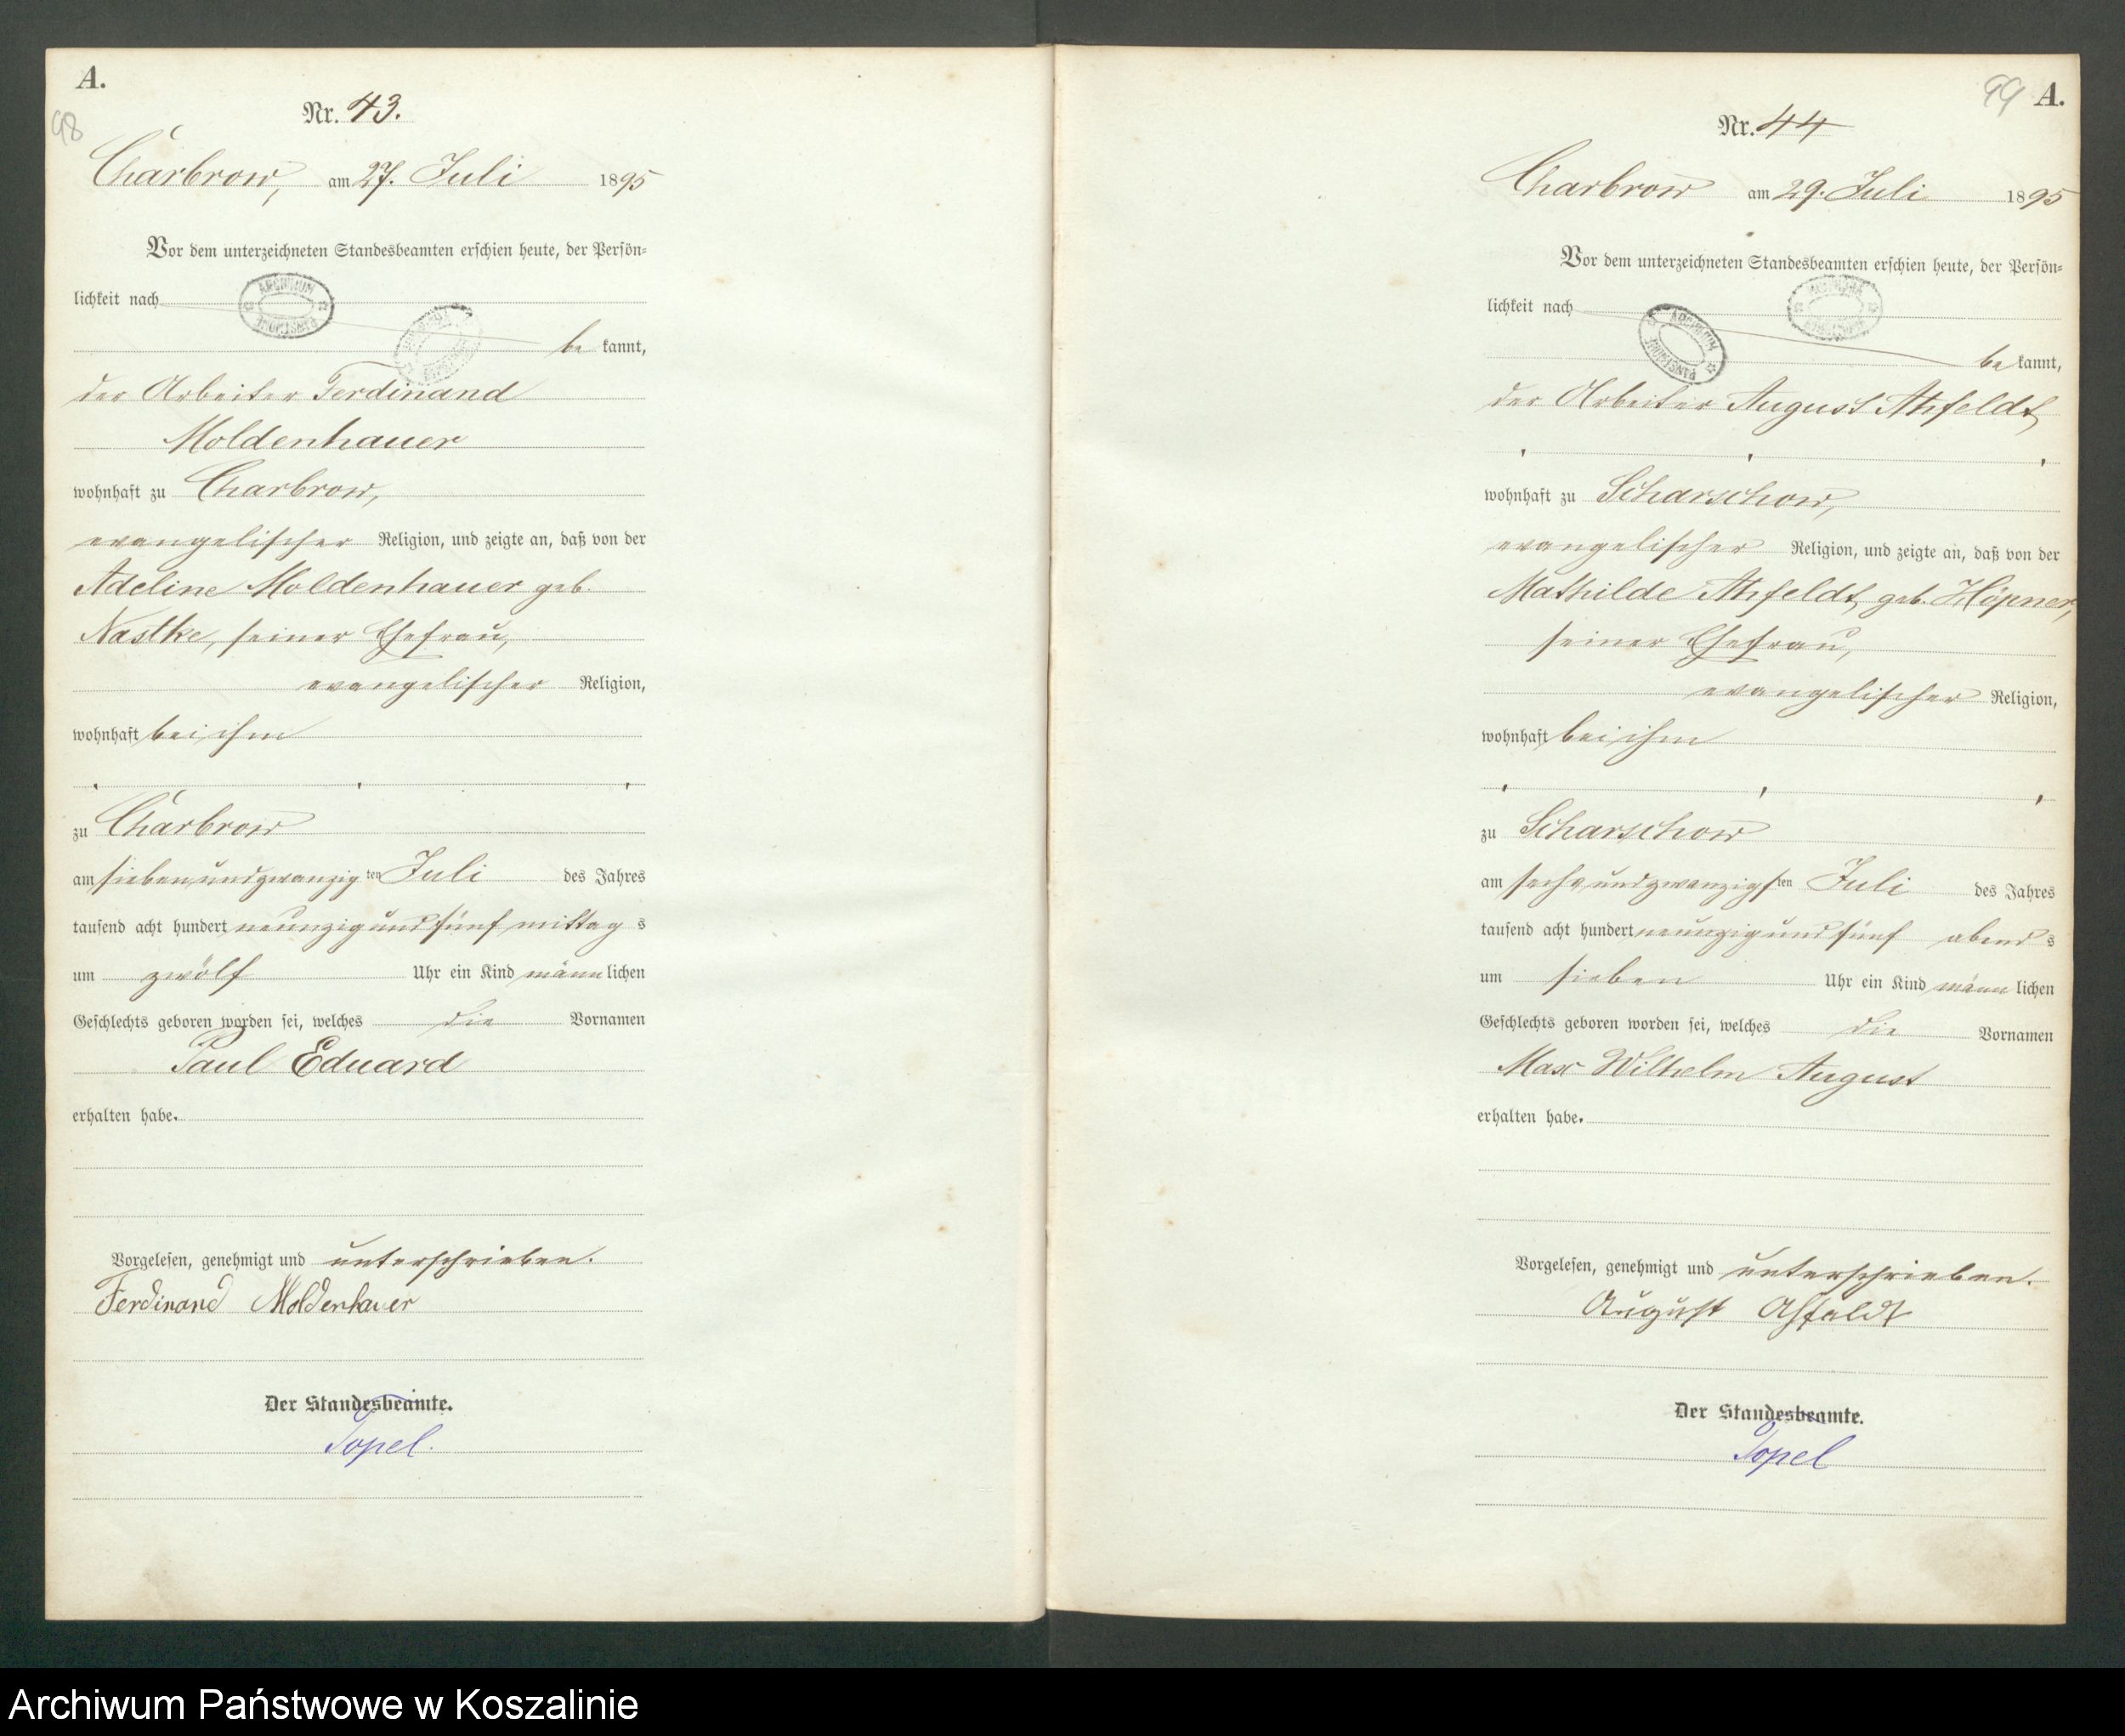 A.
98
Nr. 43.
Charbrow, am 27. Juli 1895
Vor dem unterzeichneten Standesbeamten erschien heute, der Persön-
lichkeit nach
be kannt,
der Arbeiter Ferdinand
Moldenhauer
wohnhaft zu Charbrow,
evangelischer Religion, und zeigte an, daß von der
Adeline Moldenhauer geb.
Nastke, seiner Ehefrau,
evangelischer Religion,
wohnhaft bei ihm
zu Charbrow
am siebenundzwanzig ten Juli des Jahres
tausend acht hundert neunzig und fünf mittag s
um zwölf Uhr ein Kind männ lichen
Geschlechts geboren worden sei, welches die Vornamen
Paul Eduard
erhalten habe.
Vorgelesen, genehmigt und unterschrieben.
Ferdinand Moldenhauer
Der Standesbeamte.
Topel.
99 A.
Nr. 44
Charbrow am 29. Juli 1895
Vor dem unterzeichneten Standesbeamten erschien heute, der Persön-
lichkeit nach
be kannt,
der Arbeiter August Ahfeldt
wohnhaft zu Scharschow,
evangelischer Religion, und zeigte an, daß von der
Mathilde Ahfeldt, geb. Höpner,
seiner Ehefrau,
evangelischer Religion,
wohnhaft bei ihm
zu Scharschow
am sechsundzwanzigs ten Juli des Jahres
tausend acht hundert neunzig und fünf abend s
um sieben Uhr ein Kind männ lichen
Geschlechts geboren worden sei, welches die Vornamen
Max Wilhelm August
erhalten habe.
Vorgelesen, genehmigt und unterschrieben.
August Ahfeldt
Der Standesbeamte.
Topel
ARCHIWUM PAŃSTWOWE
Archiwum Państwowe w Koszalinie